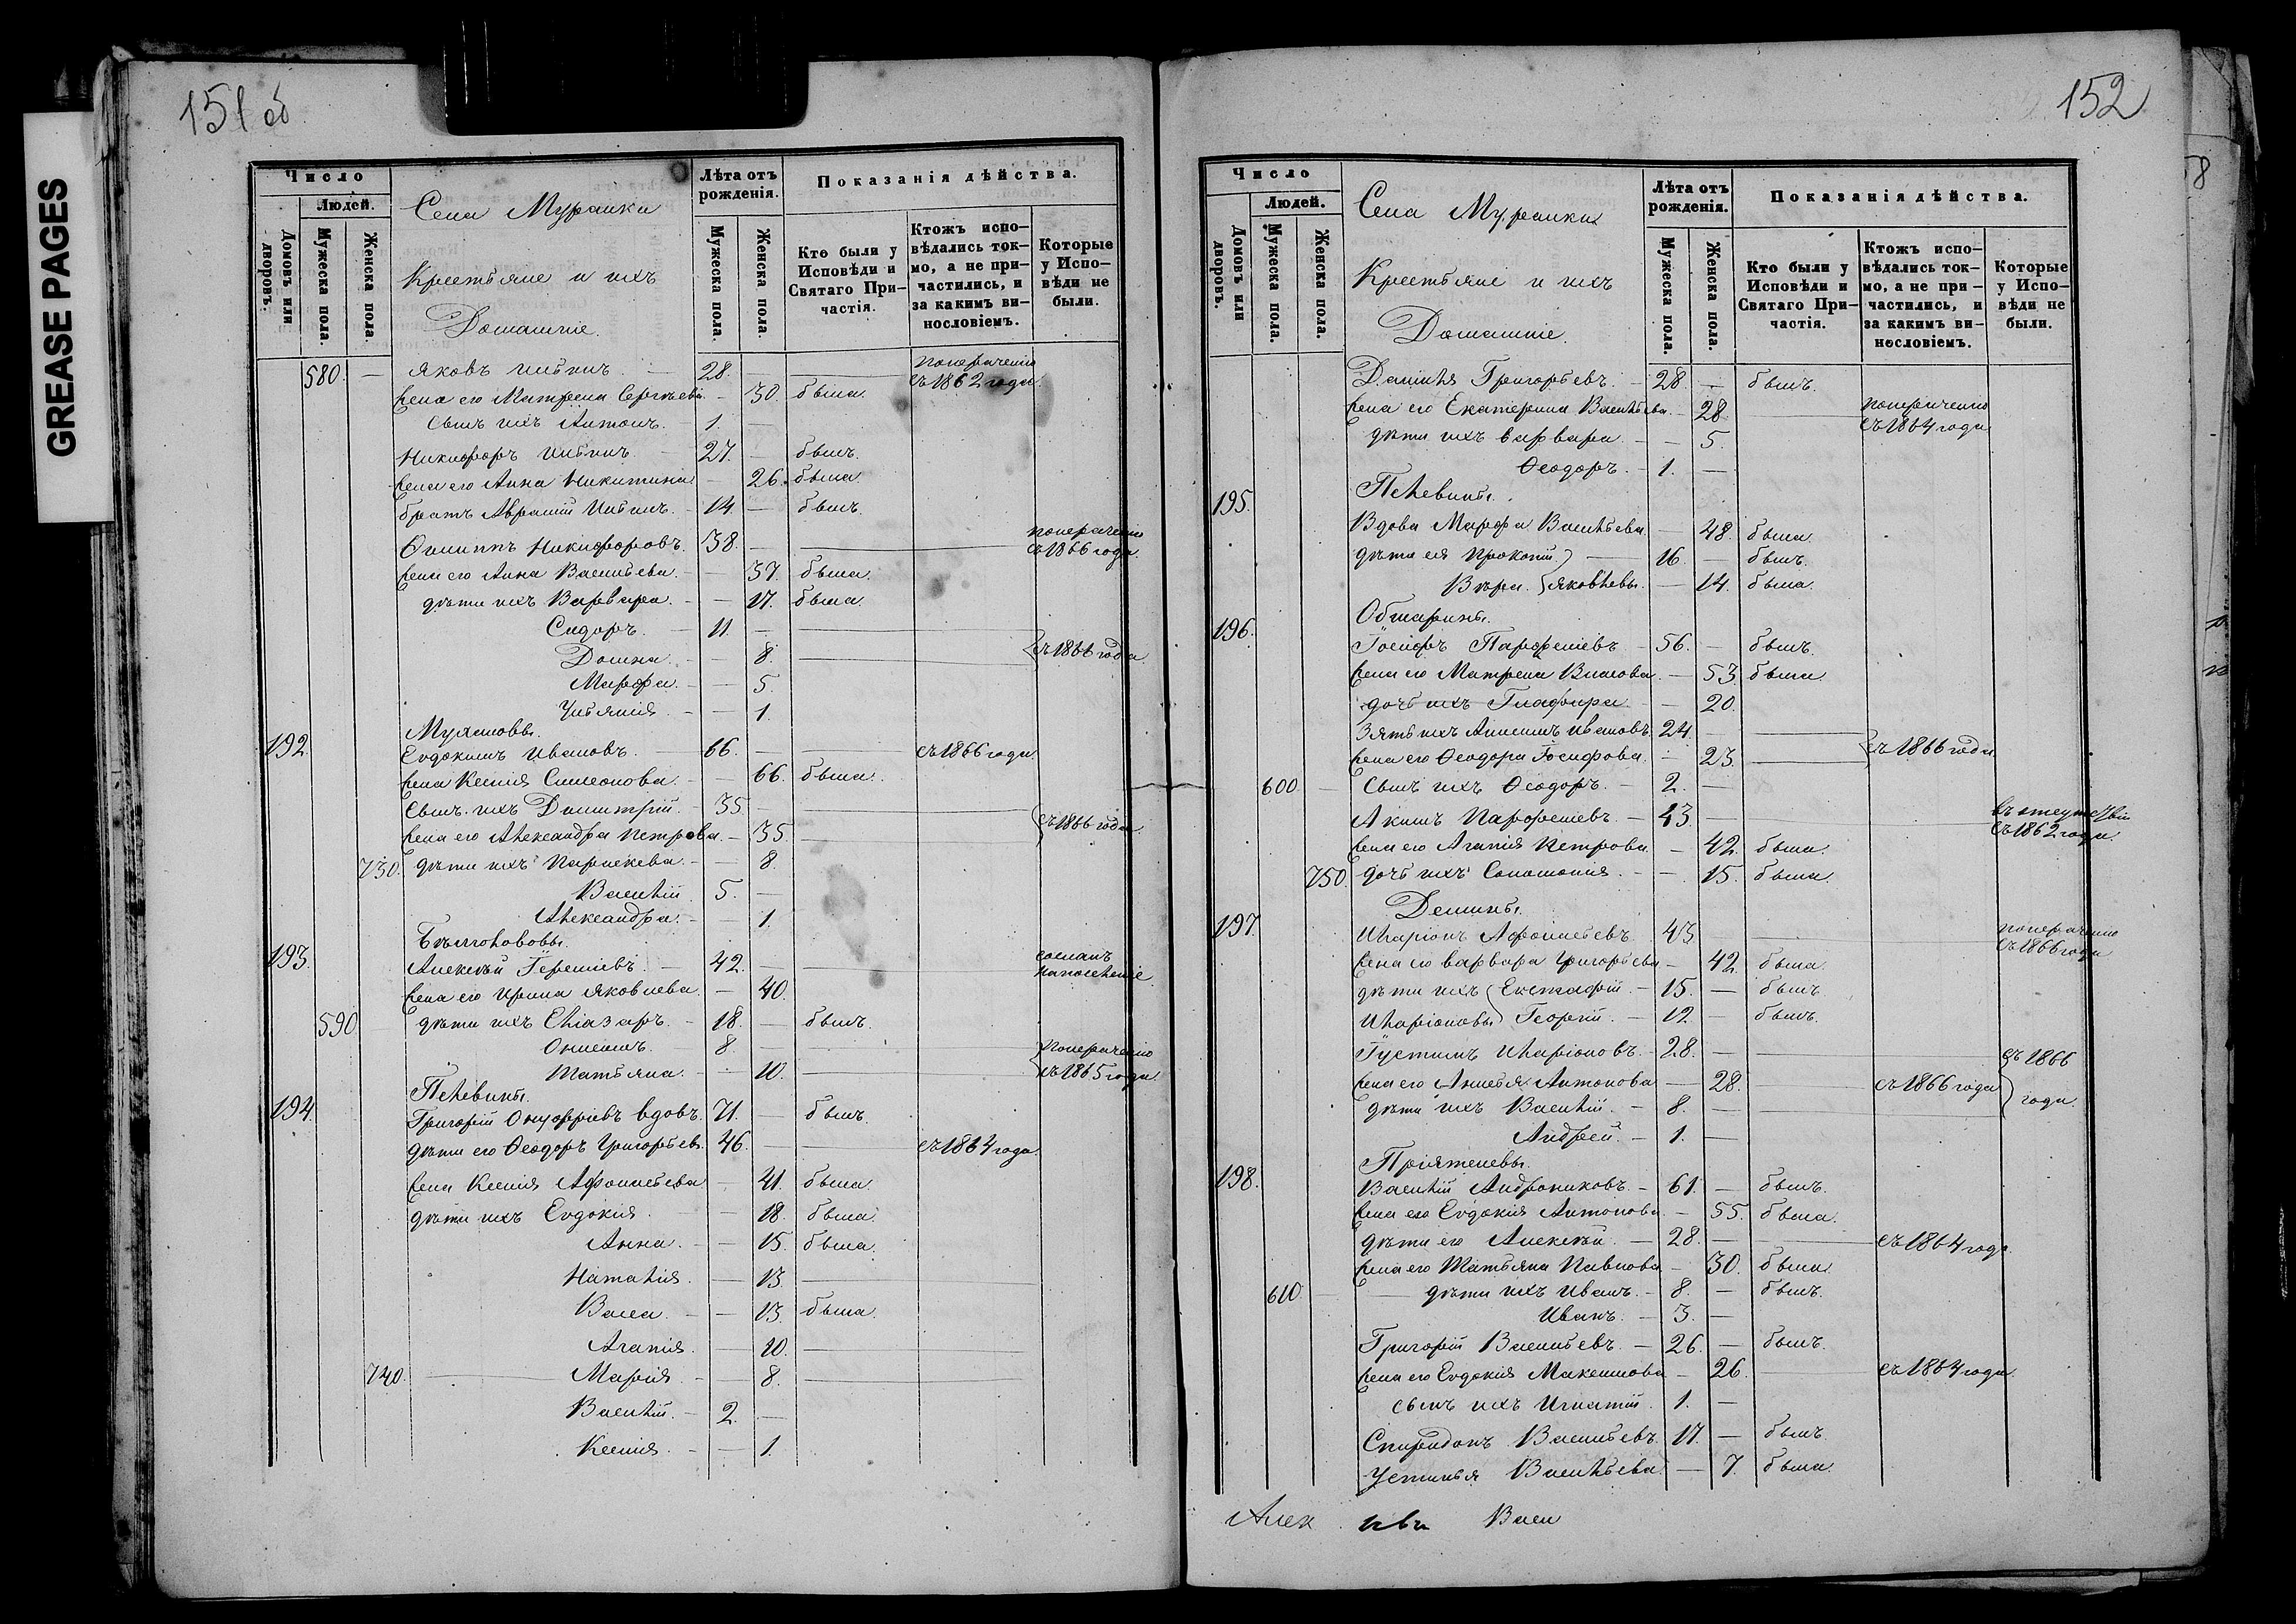 GREASE PAGES
151 об
Число
Людей.
Домовъ или дворовъ.
Мужеска пола.
Женска пола.
Села Муранки
Крестьяне и ихъ
Домашніе.
Лѣта отъ рожденія.
Мужеска пола.
Женска пола.
Показанія дѣйства.
Кто были у Исповѣди и Святаго Причастія.
Ктожъ исповѣдались токмо, а не причастились, и за какимъ винословіемъ.
Которые у Исповѣди не были.
580. — Яковъ Ильинъ. — 28. — понераченію съ 1862 года.
Жена его Матрена Сергѣева — 30. была.
Сынъ ихъ Антонъ. — 1. —
Никифоръ Ильинъ. — 27. — былъ.
Жена его Анна Никитина — 26. была.
братъ Аврамій Ильинъ. — 14. — былъ.
Филиппъ Никифоровъ. 38. — понераченію съ 1866 года.
Жена его Анна Васильева. — 37. была.
дѣти ихъ Варвара. — 17. была.
Сидоръ. — 11. —
Домна. — 8. — съ 1866 года.
Марфа. — 5.
Ульянія. — 1.
192. Евдокимъ Ивановъ. — 66. — съ 1866 года.
Жена Ксенія Симеонова. — 66. была.
Сынъ ихъ Димитрій. — 35 —
Жена его Александра Петрова. — 35. — съ 1866 года.
730. дѣти ихъ Параскева. — 8.
Василій. 5. —
Александра. — 1.
193. Алексѣй Ереміевъ. — 42. — сосланъ на поселеніе
Жена его Ирина Яковлева. — 40.
590 дѣти ихъ Еліазаръ. — 18. — былъ.
Онисимъ. 8. — понераченію
Татьяна. — 10. — съ 1865 года.
Пелевины.
194. Григорій Онуфріевъ вдовъ. 71. — былъ.
дѣти его Ѳеодоръ Григорьевъ. 46. — съ 1864 года.
Жена Ксенія Афонасьева — 41. была.
дѣти ихъ Евдокія. — 18. была.
Анна. — 15. была.
Наталія. — 13. —
Васса. — 13. была.
Агапія. — 10. —
740. — Марія. — 8. —
Василій. — 2. —
Ксенія. — 1.
152
Число
Людей.
Домовъ или дворовъ.
Мужеска пола.
Женска пола.
Села Муранки
Крестьяне и ихъ
Домашніе.
Лѣта отъ рожденія.
Мужеска пола.
Женска пола.
Показанія дѣйства.
Кто были у Исповѣди и Святаго Причастія.
Ктожъ исповѣдались токмо, а не причастились, и за какимъ винословіемъ.
Которые у Исповѣди не были.
Даніилъ Григорьевъ. — 28. — былъ.
Жена его Екатерина Васильева. — 28. — понераченію съ 1864 года
дѣти ихъ Варвара — 5.
Ѳеодоръ. — 1. —
195. Пелевины.
Вдова Марфа Васильева — 48. была.
дѣти ея Прокопій — 16. — былъ.
Вѣра. Яковлевы. — 14. была.
196. Обшарины.
Іосифъ Парфеніевъ. — 56. — былъ.
Жена его Матрена Власова. — 53. была.
дочь ихъ Глафира — 20.
Зять ихъ Анисимъ Ивановъ. 24. —
Жена его Ѳеодора Іосифова. — 23. — съ 1866 года
600. — Сынъ ихъ Ѳеодоръ. — 2. —
Акимъ Парфеніевъ. — 43. — въ отсутствіи съ 1862 года.
Жена его Агапія Петрова — 42. была.
750. дочь ихъ Соломонія. — 15. была.
Демины.
197. Иларіонъ Афонасьевъ. 43. — понераченію съ 1866 года
Жена его Варвара Григорьева — 42. была.
дѣти ихъ Евстафій. — 15. — былъ.
Иларіоновы Георгій. — 12. — былъ.
Іустинъ Иларіоновъ. — 28. — съ 1866 года.
Жена его Анисья Антонова — 28. — съ 1866 года
дѣти ихъ Василій. — 8. —
Андрей. — 1. —
Пріятелевы.
198. Василій Андрониковъ. — 61. — былъ.
Жена его Евдокія Антонова — 55. была.
дѣти его Алексѣй. — 28. — съ 1864 года.
Жена его Татьяна Павлова — 30. была.
610 — дѣти ихъ Иванъ. — 8. — былъ.
Иванъ. — 3. —
Григорій Васильевъ. — 26. — былъ.
Жена его Евдокія Максимова — 26. — съ 1864 года.
сынъ ихъ Игнатій. 1. —
Спиридонъ Васильевъ. 17. — былъ.
Устинья Васильева — 7. была.
Алек ива Васи